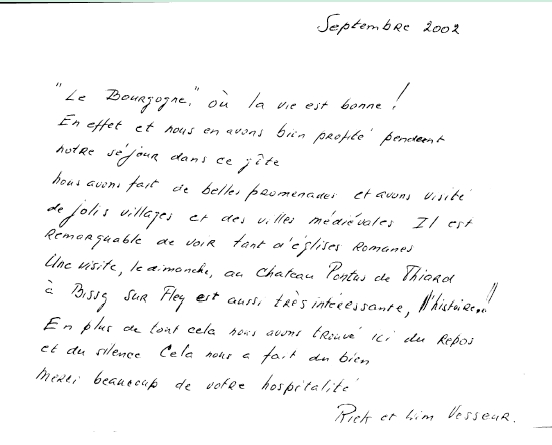 Septembre 2002
"Le Bourgogne" où la vie est bonne !
En effet et nous en avons bien profité pendent
notre séjour dans ce gîte
nous avons fait de belles promenades et avons visité
de jolis villages et des villes médiévales Il est
Remarquable de voir tant d'églises Romanes
Une visite, le dimanche, au chateau Pontus de Thiard
à Bissy sur Fley est aussi très intéressante, l'histoire..!
En plus de tout cela nous avons trouvé ici du repos
et du silence Cela nous a fait du bien
merci beaucoup de votre hospitalité
Rick et Wim Vesseur.